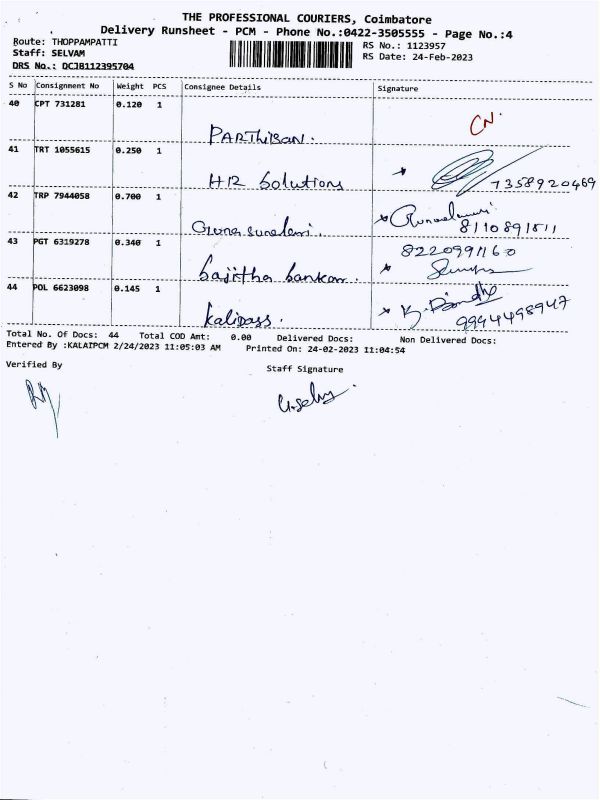 THE PROFESSIONAL COURIERS, Coimbatore
Delivery Runsheet - PCM - Phone No.:0422-3505555 - Page No.:4
Route: THOPPAMPATTI
Staff: SELVAM
DRS No.: DCJB112395704
RS No.: 1123957
RS Date: 24-Feb-2023
S No Consignment No Weight PCS Consignee Details Signature
40 CPT 731281 0.120 1
PARThiBan. CN.
41 TRT 1055615 0.250 1
HR Solutions 7358920469
42 TRP 7944058 0.700 1
Guna sundari. 8110891811
43 PGT 6319278 0.340 1 8220991160
Sajitha Sankar.
44 POL 6623098 0.145 1
Kalidass. 9994498947
Total No. Of Docs: 44 Total COD Amt: 0.00 Delivered Docs: Non Delivered Docs:
Entered By :KALAIPCM 2/24/2023 11:05:03 AM Printed On: 24-02-2023 11:04:54
Verified By Staff Signature